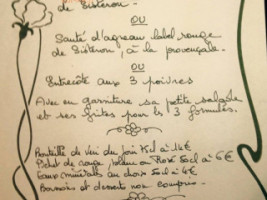 de Sisteron.
OU
Sauté d'agneau label rouge
de Sisteron, à la provençale.
OU
Entrecôte aux 3 poivres
Avec en garniture sa petite salade
et ses frites pour les 3 formules.
Bouteille de vin du 75cl à 14€
Pichet de rouge, ou Rosé 50cl à 6€
Eaux minérales au choix 50cl à 4€
Boissons et desserts non compris.